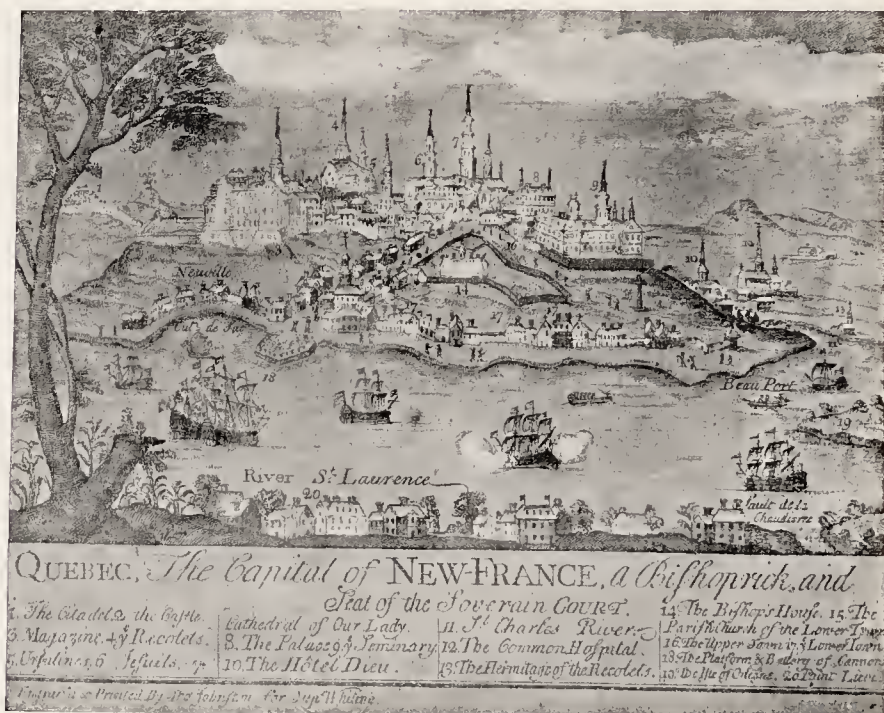 Neuville
Cul de Sac
Beau Port
River St. Laurence
Sault de la
Chaudiere
QUEBEC, The Capital of NEW-FRANCE, a Bishoprick, and
Seat of the Soverain COURT.
1. The Citadel. 2 the Castle.
3. Magazine. 4 ye Recolets.
5. Ursulines. 6 Jesuits. 7
Cathedral of Our Lady.
8. The Palace. 9 ye Seminary.
10. The Hôtel Dieu.
11. St. Charles River.
12. The Common Hospital.
13. The Hermitage of the Recolets.
14. The Bishop's House. 15. The
Parish Church of the Lower Town
16. The Upper Town 17 ye Lower Town
18. The Platform & Battery of Cannon
19. The Isle of Orleans. 20 Point Levi
Engrav'd & Printed By Tho Johnston for Step Whiting.